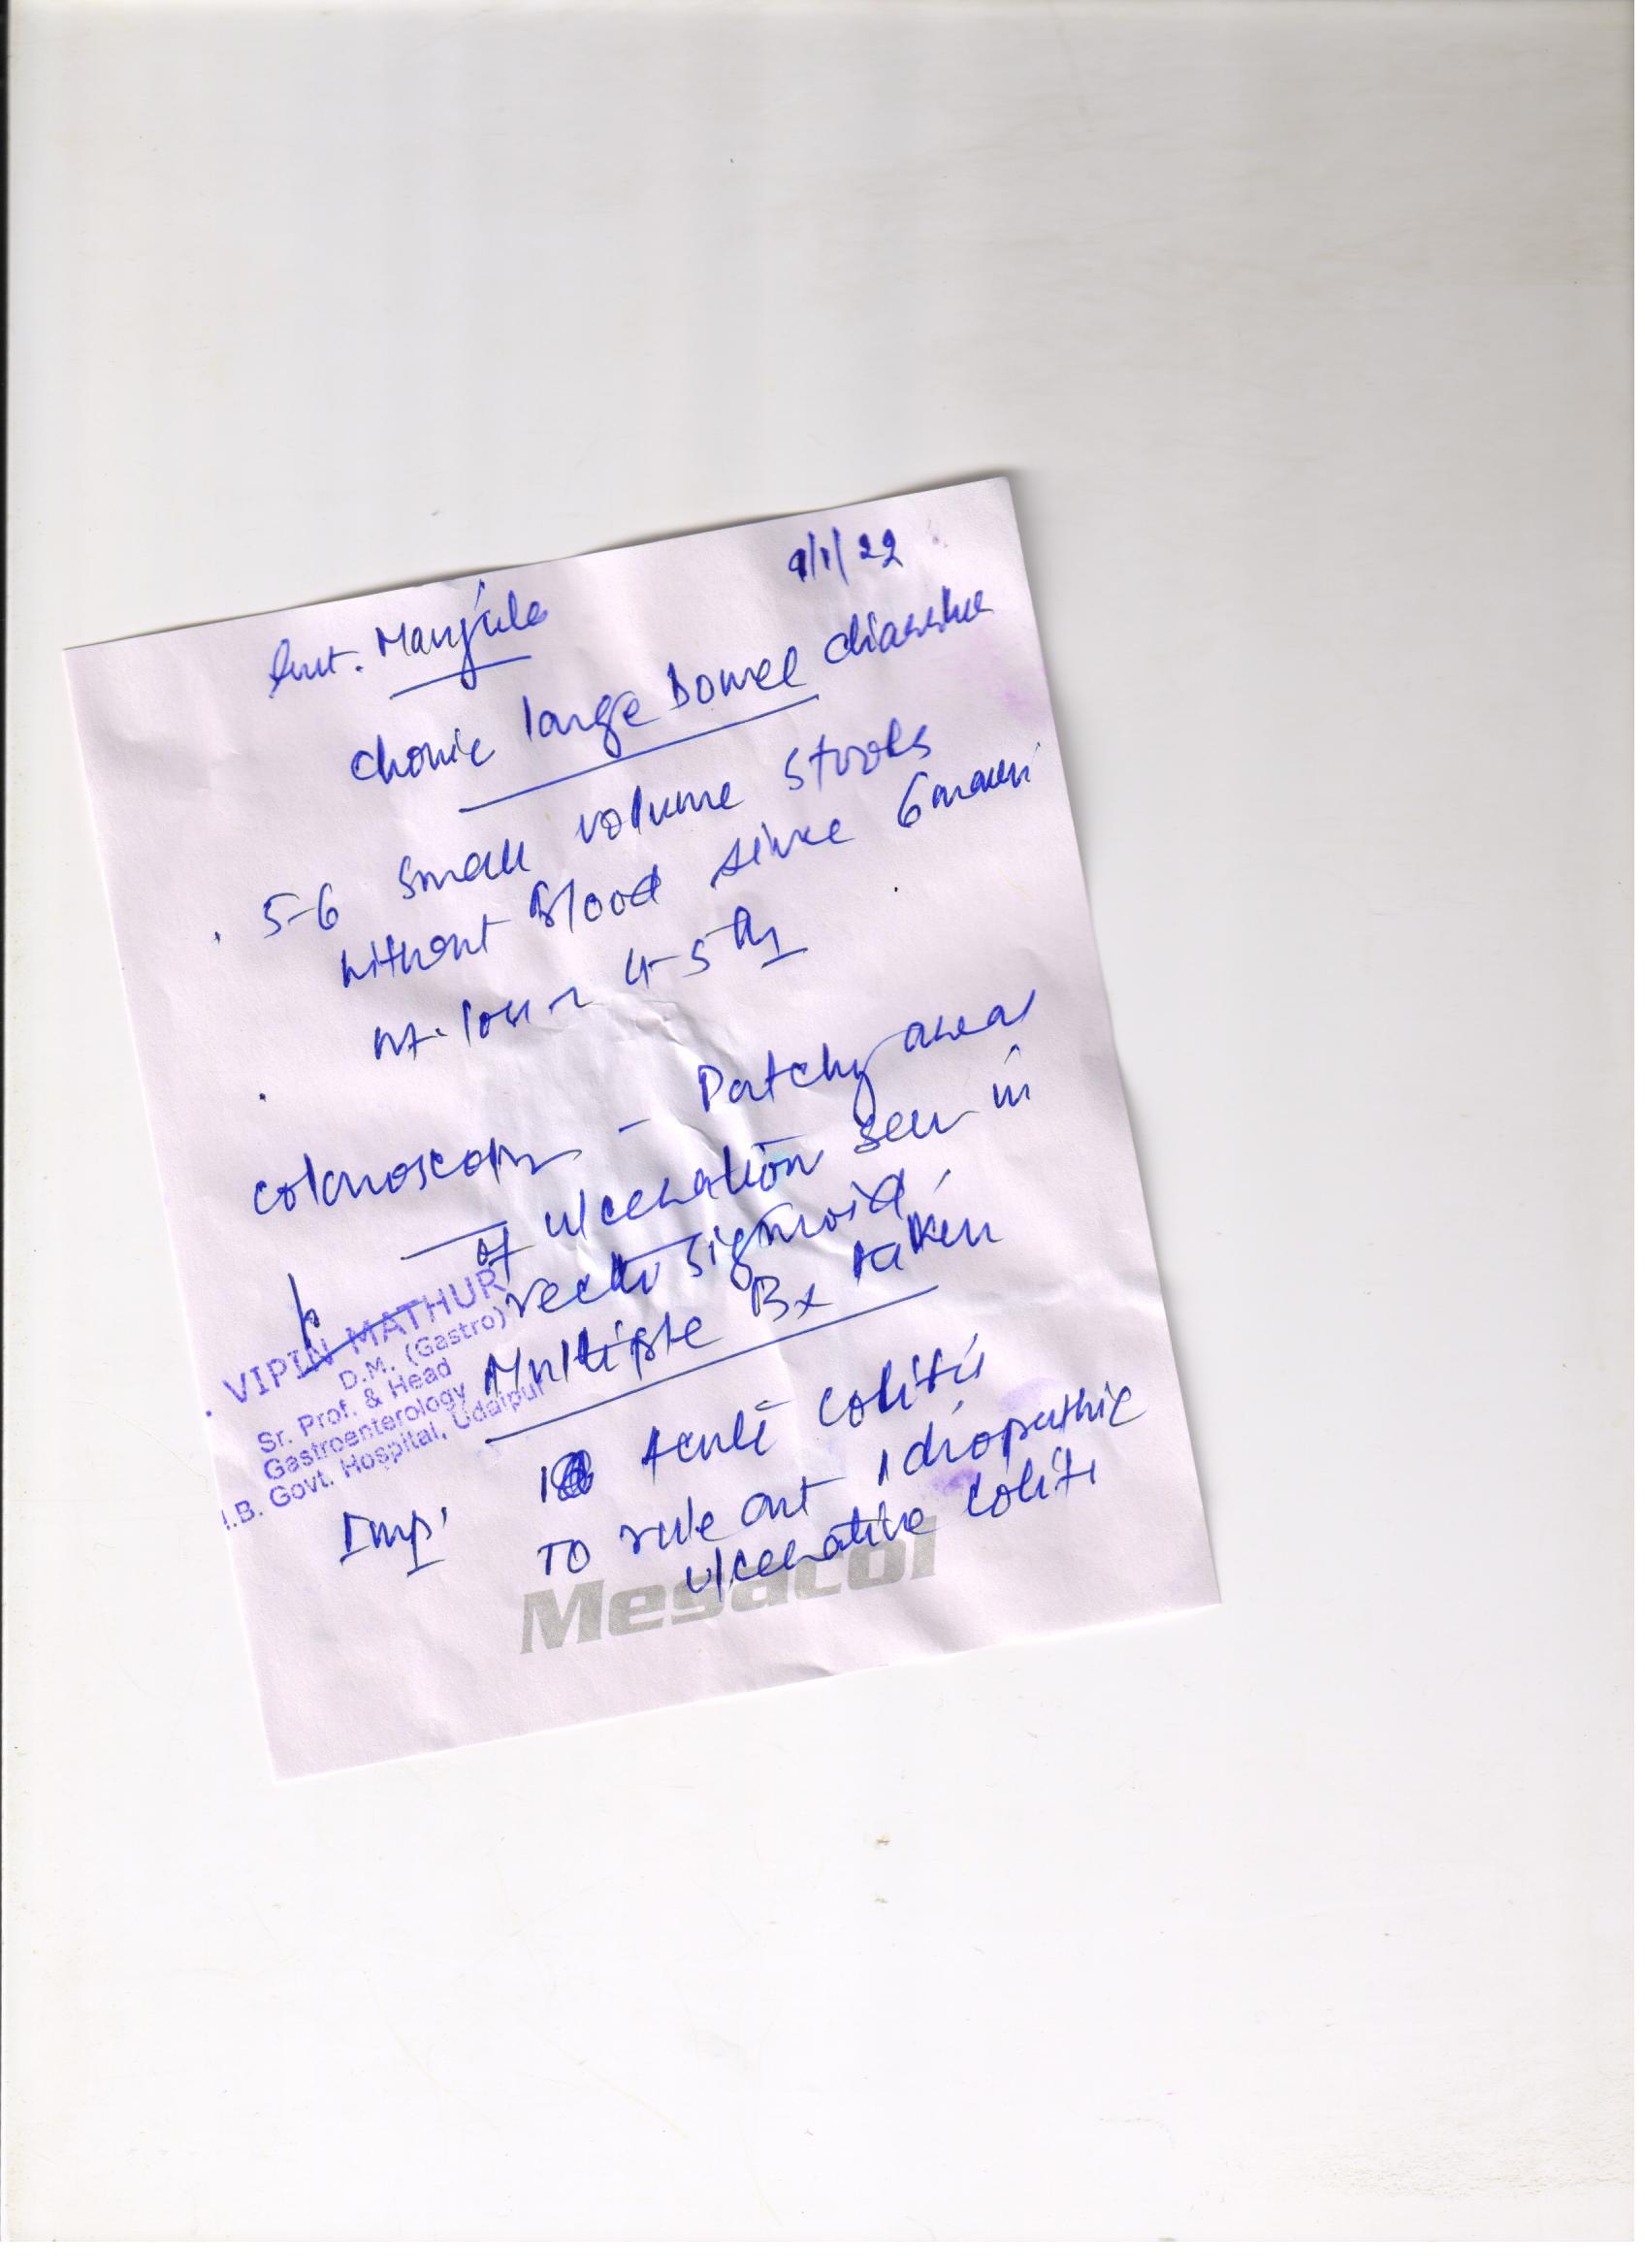 9/1/22
Smt. Manjula
Chonic large Bowel diarrhea
. 5-6 small volume stools
without Blood since 6
wt. loss 4-5
colonoscopy - Patchy areas
of ulceration seen in
recto sigmoid,
Multiple Bx taken
VIPIN MATHUR
D.M. (Gastro)
Sr. Prof. & Head
Gastroenterology
.B. Govt. Hospital, Udaipur
Imp. Acute colitis
TO rule out Idiopathic
ulcerative colitis
Mesacol